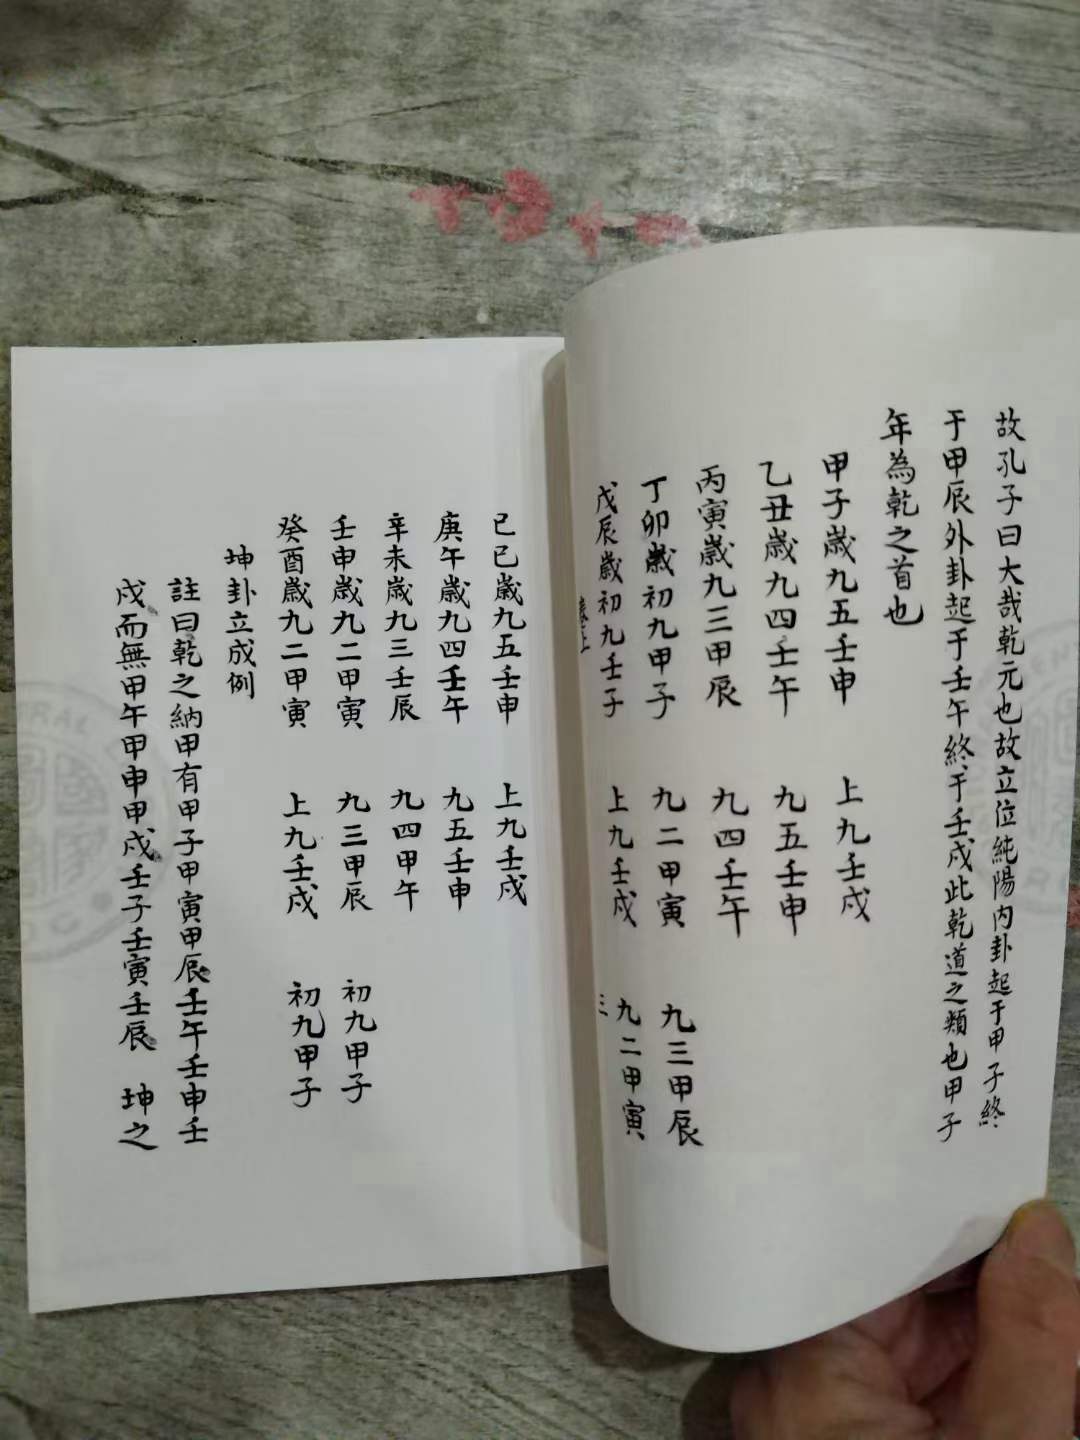 故孔子曰大哉乾元也故立位純陽内卦起于甲子終
于甲辰外卦起于壬午終于壬戌此乾道之類也甲子
年為乾之首也
甲子歲九五壬申 上九壬戌
乙丑歲九四壬午 九五壬申
丙寅歲九三甲辰 九四壬午
丁卯歲初九甲子 九二甲寅 九三甲辰
戊辰歲初九壬子 上九壬戌 九二甲寅
卷上 三
己巳歲九五壬申 上九壬戌
庚午歲九四壬午 九五壬申
辛未歲九三壬辰 九四甲午
壬申歲九二甲寅 九三甲辰 初九甲子
癸酉歲九二甲寅 上九壬戌 初九甲子
坤卦立成例
註曰乾之納甲有甲子甲寅甲辰壬午壬申壬
戌而無甲午甲申甲戌壬子壬寅壬辰 坤之